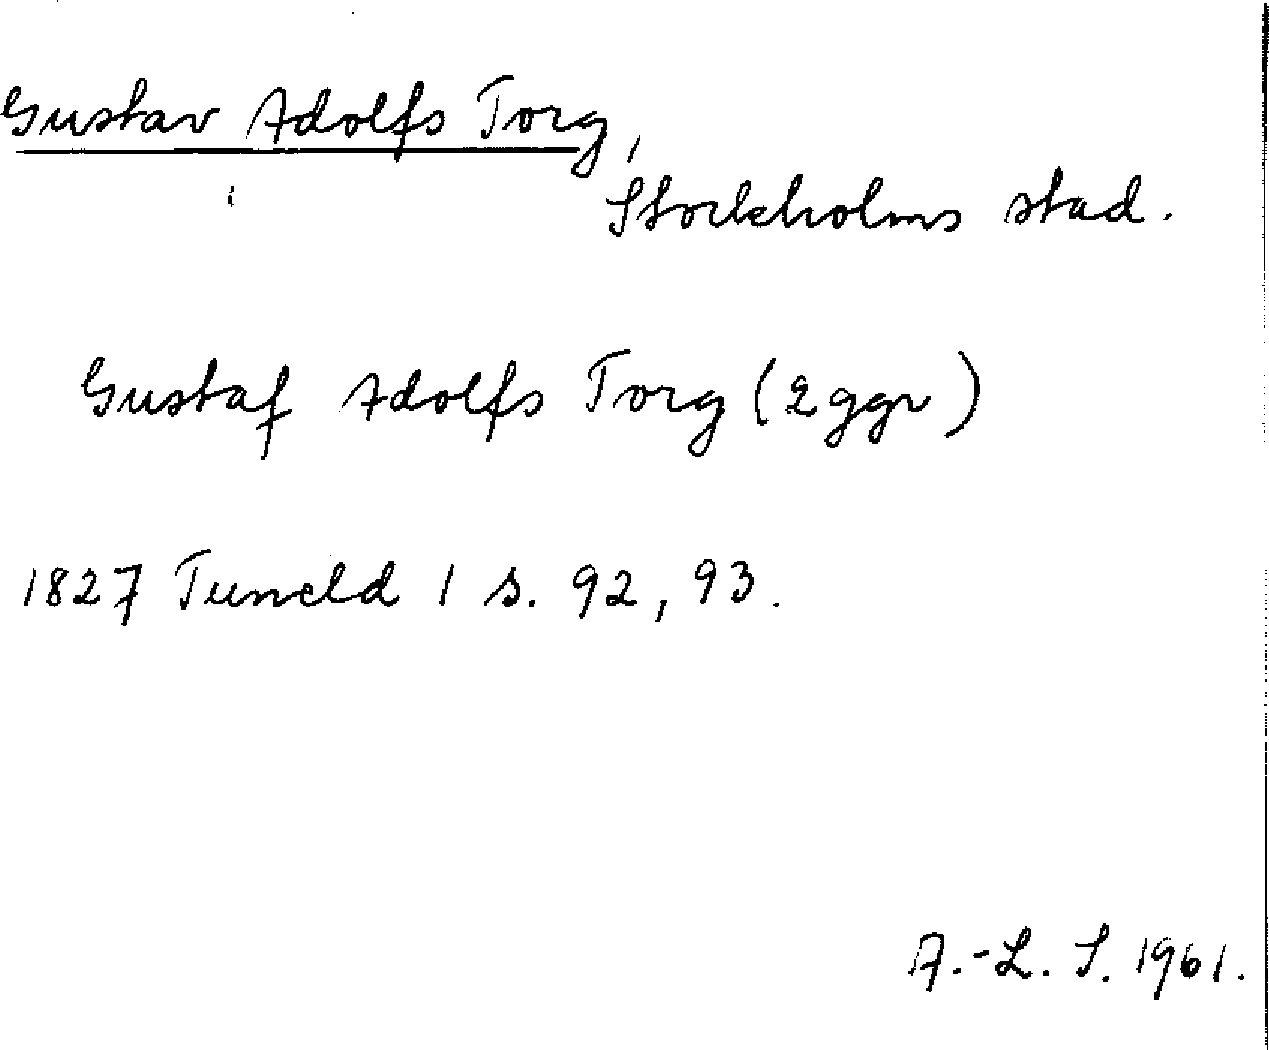 Gustav Adolfs Torg,
Stockholms stad.
Gustaf Adolfs Torg (2 ggr)
1827 Tuneld 1 s. 92, 93.
A.-L. S. 1961.